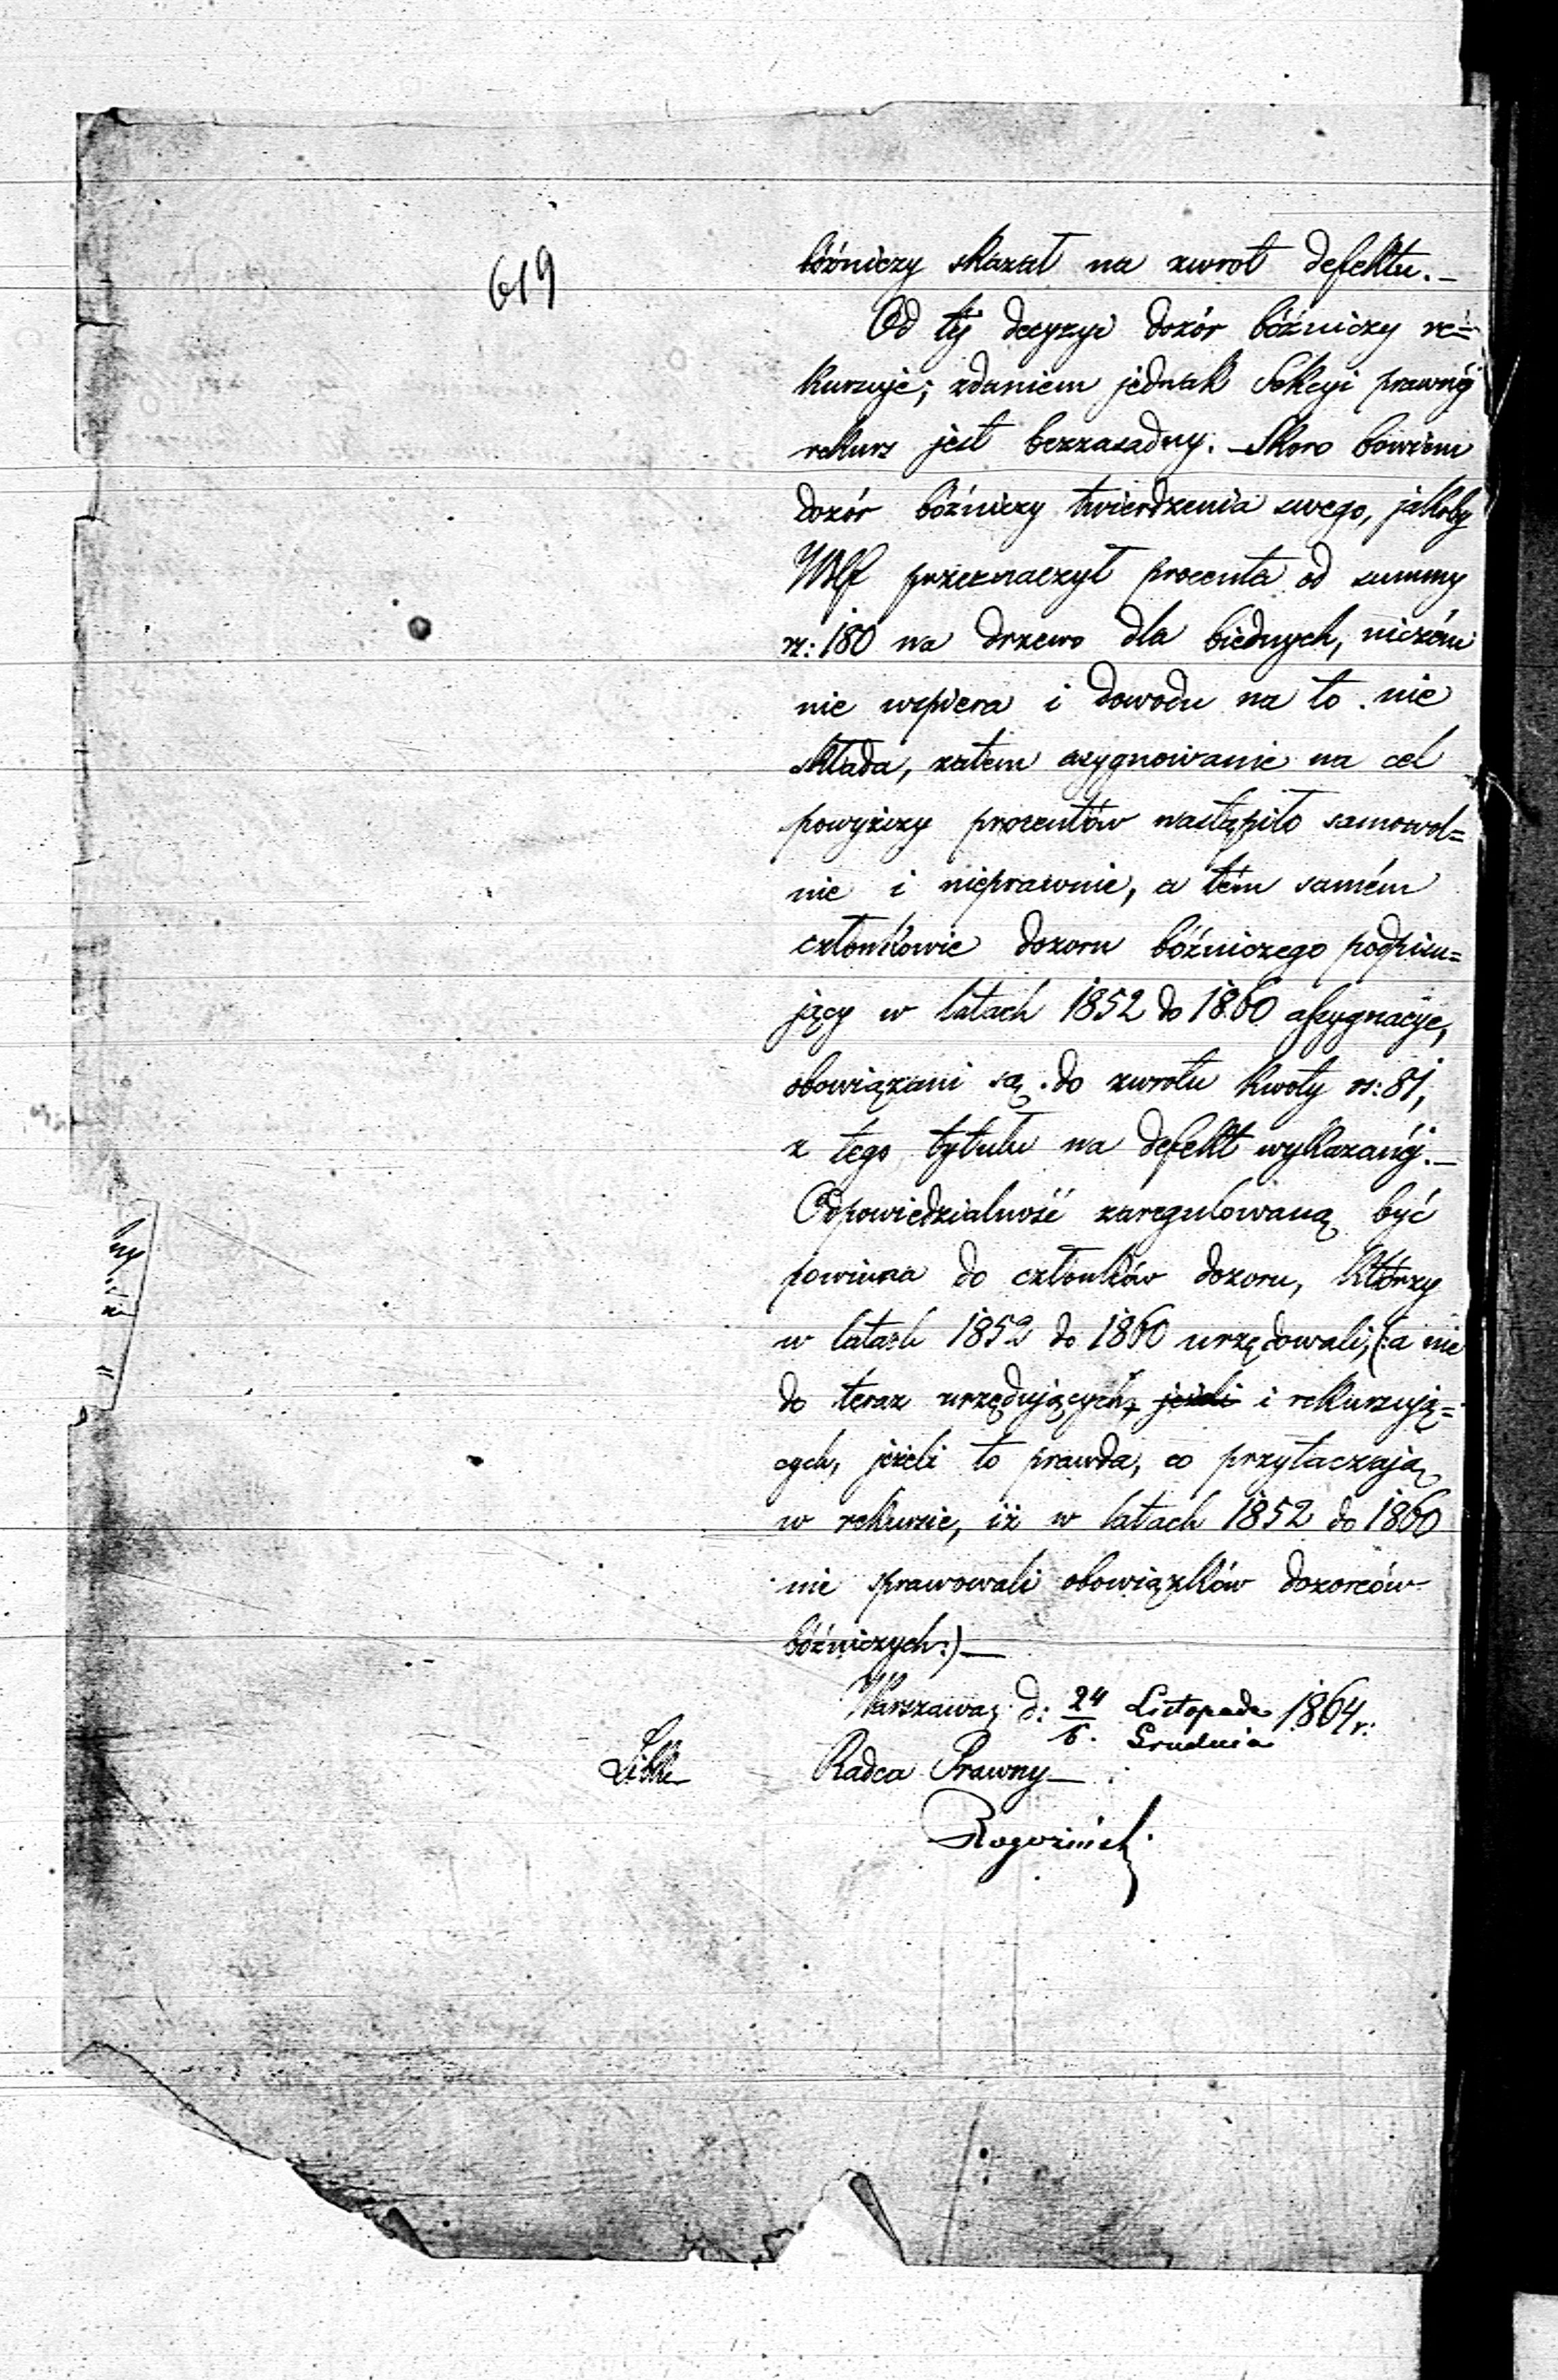 619
bóźniczy skazał na zwrot defektu.—
Od téj decyzyi dozór bóźniczy re=
kursuje; zdaniem jednak Sekcyi prawnéj
rekurs jest bezzasadny.—Skoro bowiem
dozór bóźniczy twierdzenia swego, jakoby
Wolf przeznaczył procenta od summy
rs: 180 na drzewo dla biednych, niczém
nie wspiera i dowodu na to nie
składa, zatem asygnowanie na cel
powyższy procentów nastąpiło samowol=
nie i nieprawnie, a tém samém
członkowie dozoru bóźniczego podpisu=
jący w latach 1852 do 1860 assygnacye,
obowiązani są do zwrotu kwoty rs: 81,
z tego tytułu na defekt wykazanéj.—
Odpowiedzialność zaregulowaną być
powinna do członków dozoru, którzy
w latach 1852 do 1860 urzędowali, (:a nie
do teraz urzędujących, jeżeli i rekursują=
cych, jeżeli to prawda, co przytaczają
w rekursie, iż w latach 1852 do 1860
nie sprawowali obowiązków dozorców
bóźniczych:)—
Warszawa, d: 24/6. Listopada/Grudnia 1864 r:
Radca Prawny—
Rogoziński